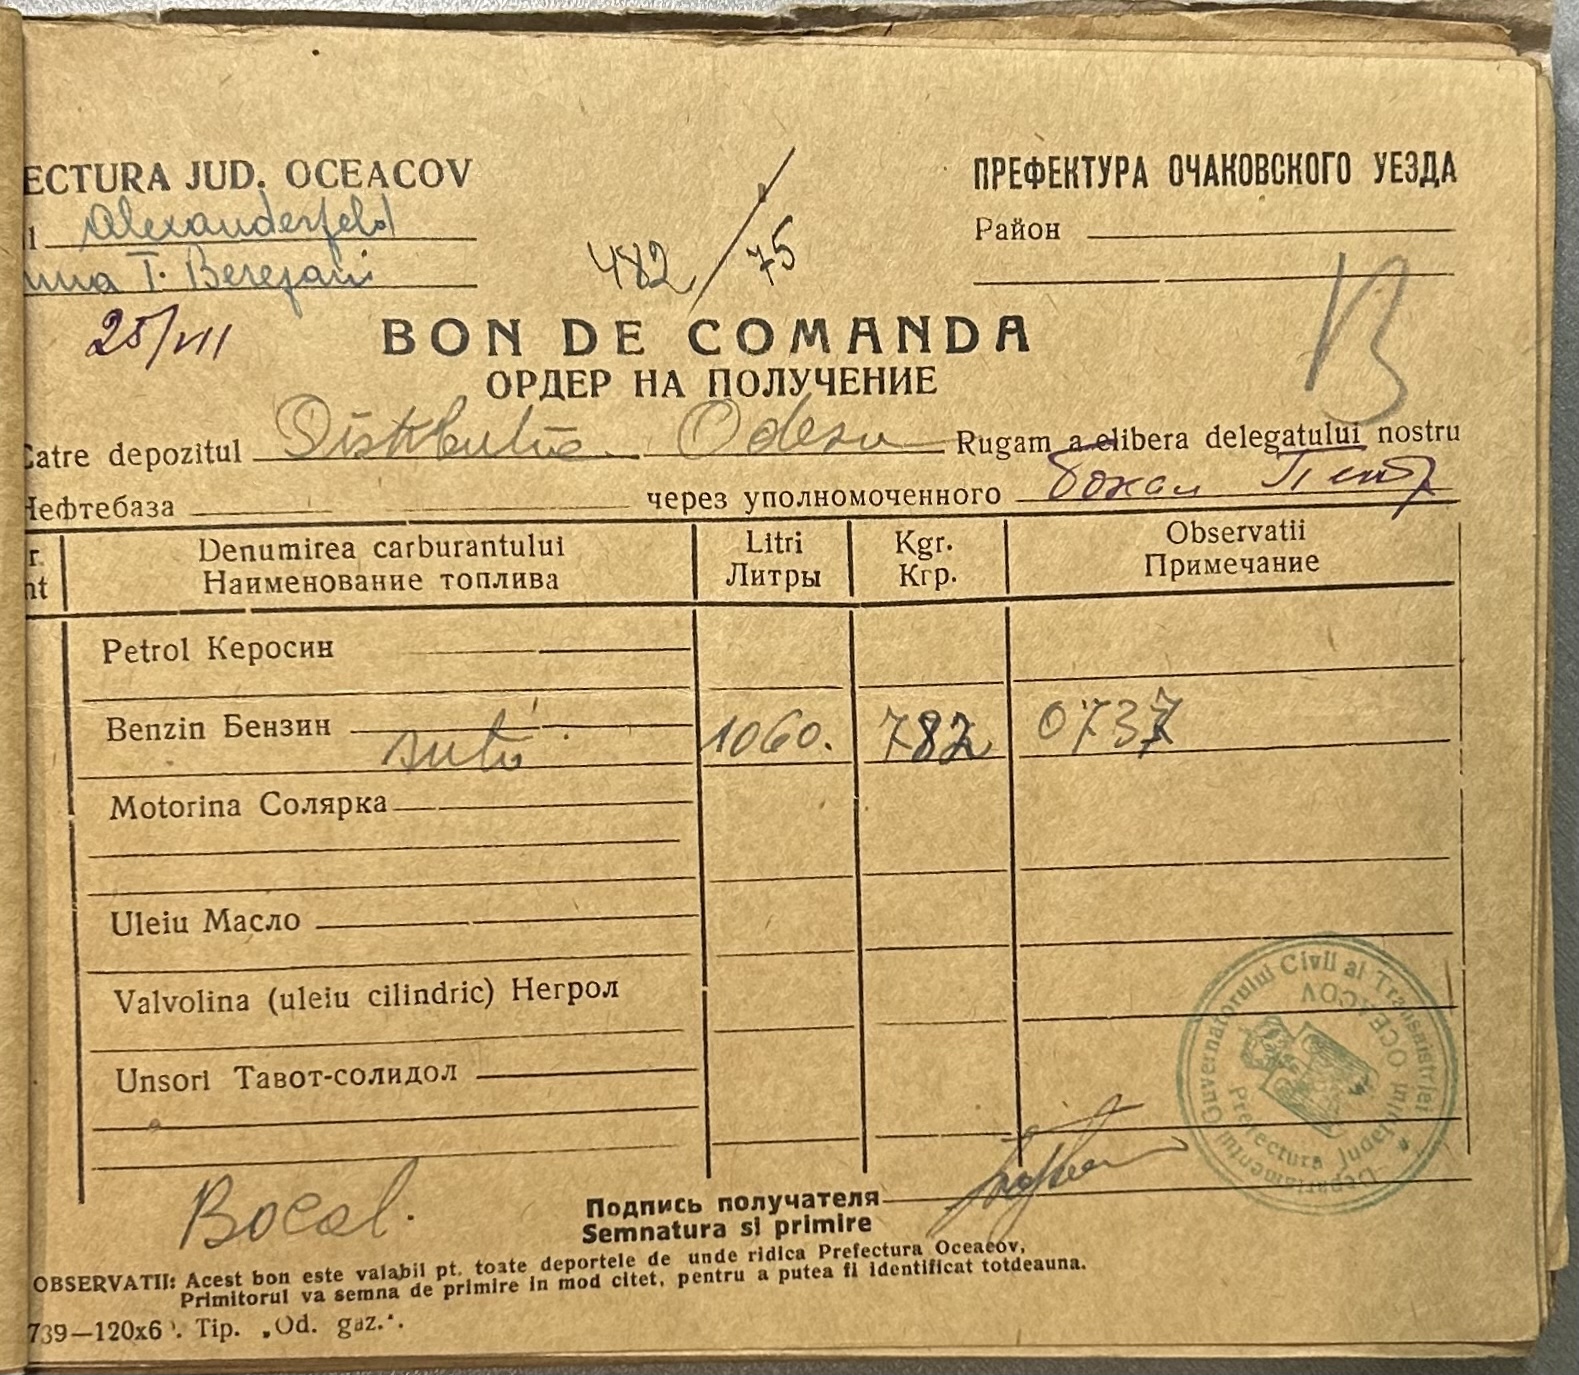 ECTURA JUD. OCEACOV
ПРЕФЕКТУРА ОЧАКОВСКОГО УЕЗДА
l Alexanderfeld
Район
T. Berejani
482/75
25/VII
B
BON DE COMANDA
ОРДЕР НА ПОЛУЧЕНИЕ
Catre depozitul Distributia Odesa Rugam a elibera delegatului nostru
Нефтебаза через уполномоченного Бокал Петр
r. Denumirea carburantului Litri Kgr. Observatii
nt Наименование топлива Литры Кгр. Примечание
Petrol Керосин
Benzin Бензин auto 1060. 782 0737
Motorina Солярка
Uleiu Масло
Valvolina (uleiu cilindric) Негрол
Unsori Тавот-солидол
Guvernatorului Civil al Transnistriei
Prefectura Județului OCEACOV
Bocal.
Подпись получателя
Semnatura si primire
OBSERVATII: Acest bon este valabil pt. toate deportele de unde ridica Prefectura Oceacov,
Primitorul va semna de primire in mod citet, pentru a putea fi identificat totdeauna.
739—120x6 . Tip. „Od. gaz.".